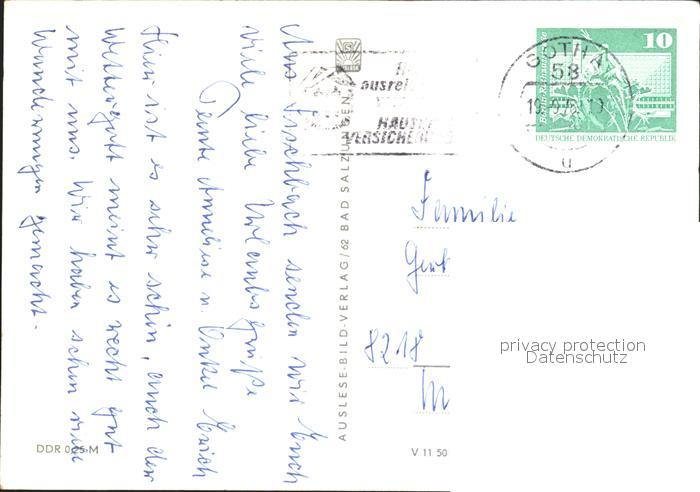 Aus Fischbach senden wir Euch
viele liebe Urlaubsgrüße
Tante Anneliese u. Onkel Erich
Hier ist es sehr schön, auch der
Wettergott meint es recht gut
mit uns. Wir haben schon viele
Wanderungen gemacht.
AUSLESE-BILD-VERLAG/62 BAD SALZUNGEN
DDR 0,25 M
V 11 50
HAUS
VERSICHE
GOTHA
58
u
10
DEUTSCHE DEMOKRATISCHE REPUBLIK
Familie
8218
privacy protection
Datenschutz